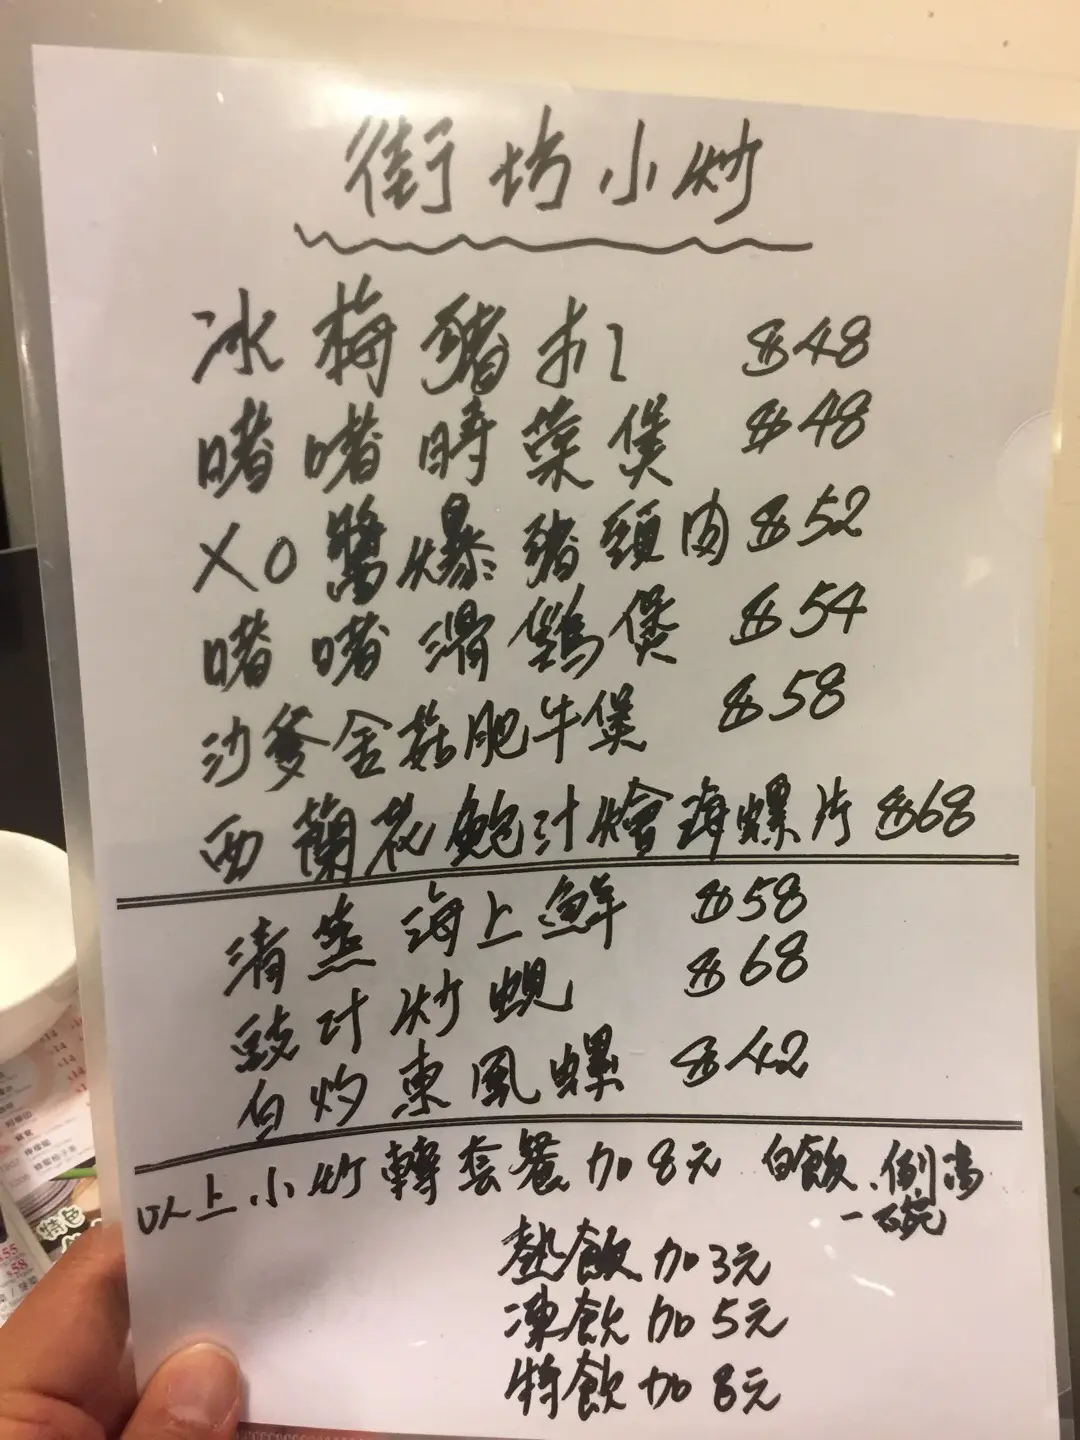 街坊小炒
冰梅豬扒 $48
啫啫時菜煲 $48
XO醬爆豬頸肉 $52
啫啫滑鷄煲 $54
沙爹金菇肥牛煲 $58
西蘭花鮑汁燴海螺片 $68
清蒸海上鮮 $58
豉汁炒蜆 $68
白灼東風螺 $42
以上小炒轉套餐加8元 白飯、例湯
一碗
熱飲加3元
凍飲加5元
特飲加8元
特色
$58